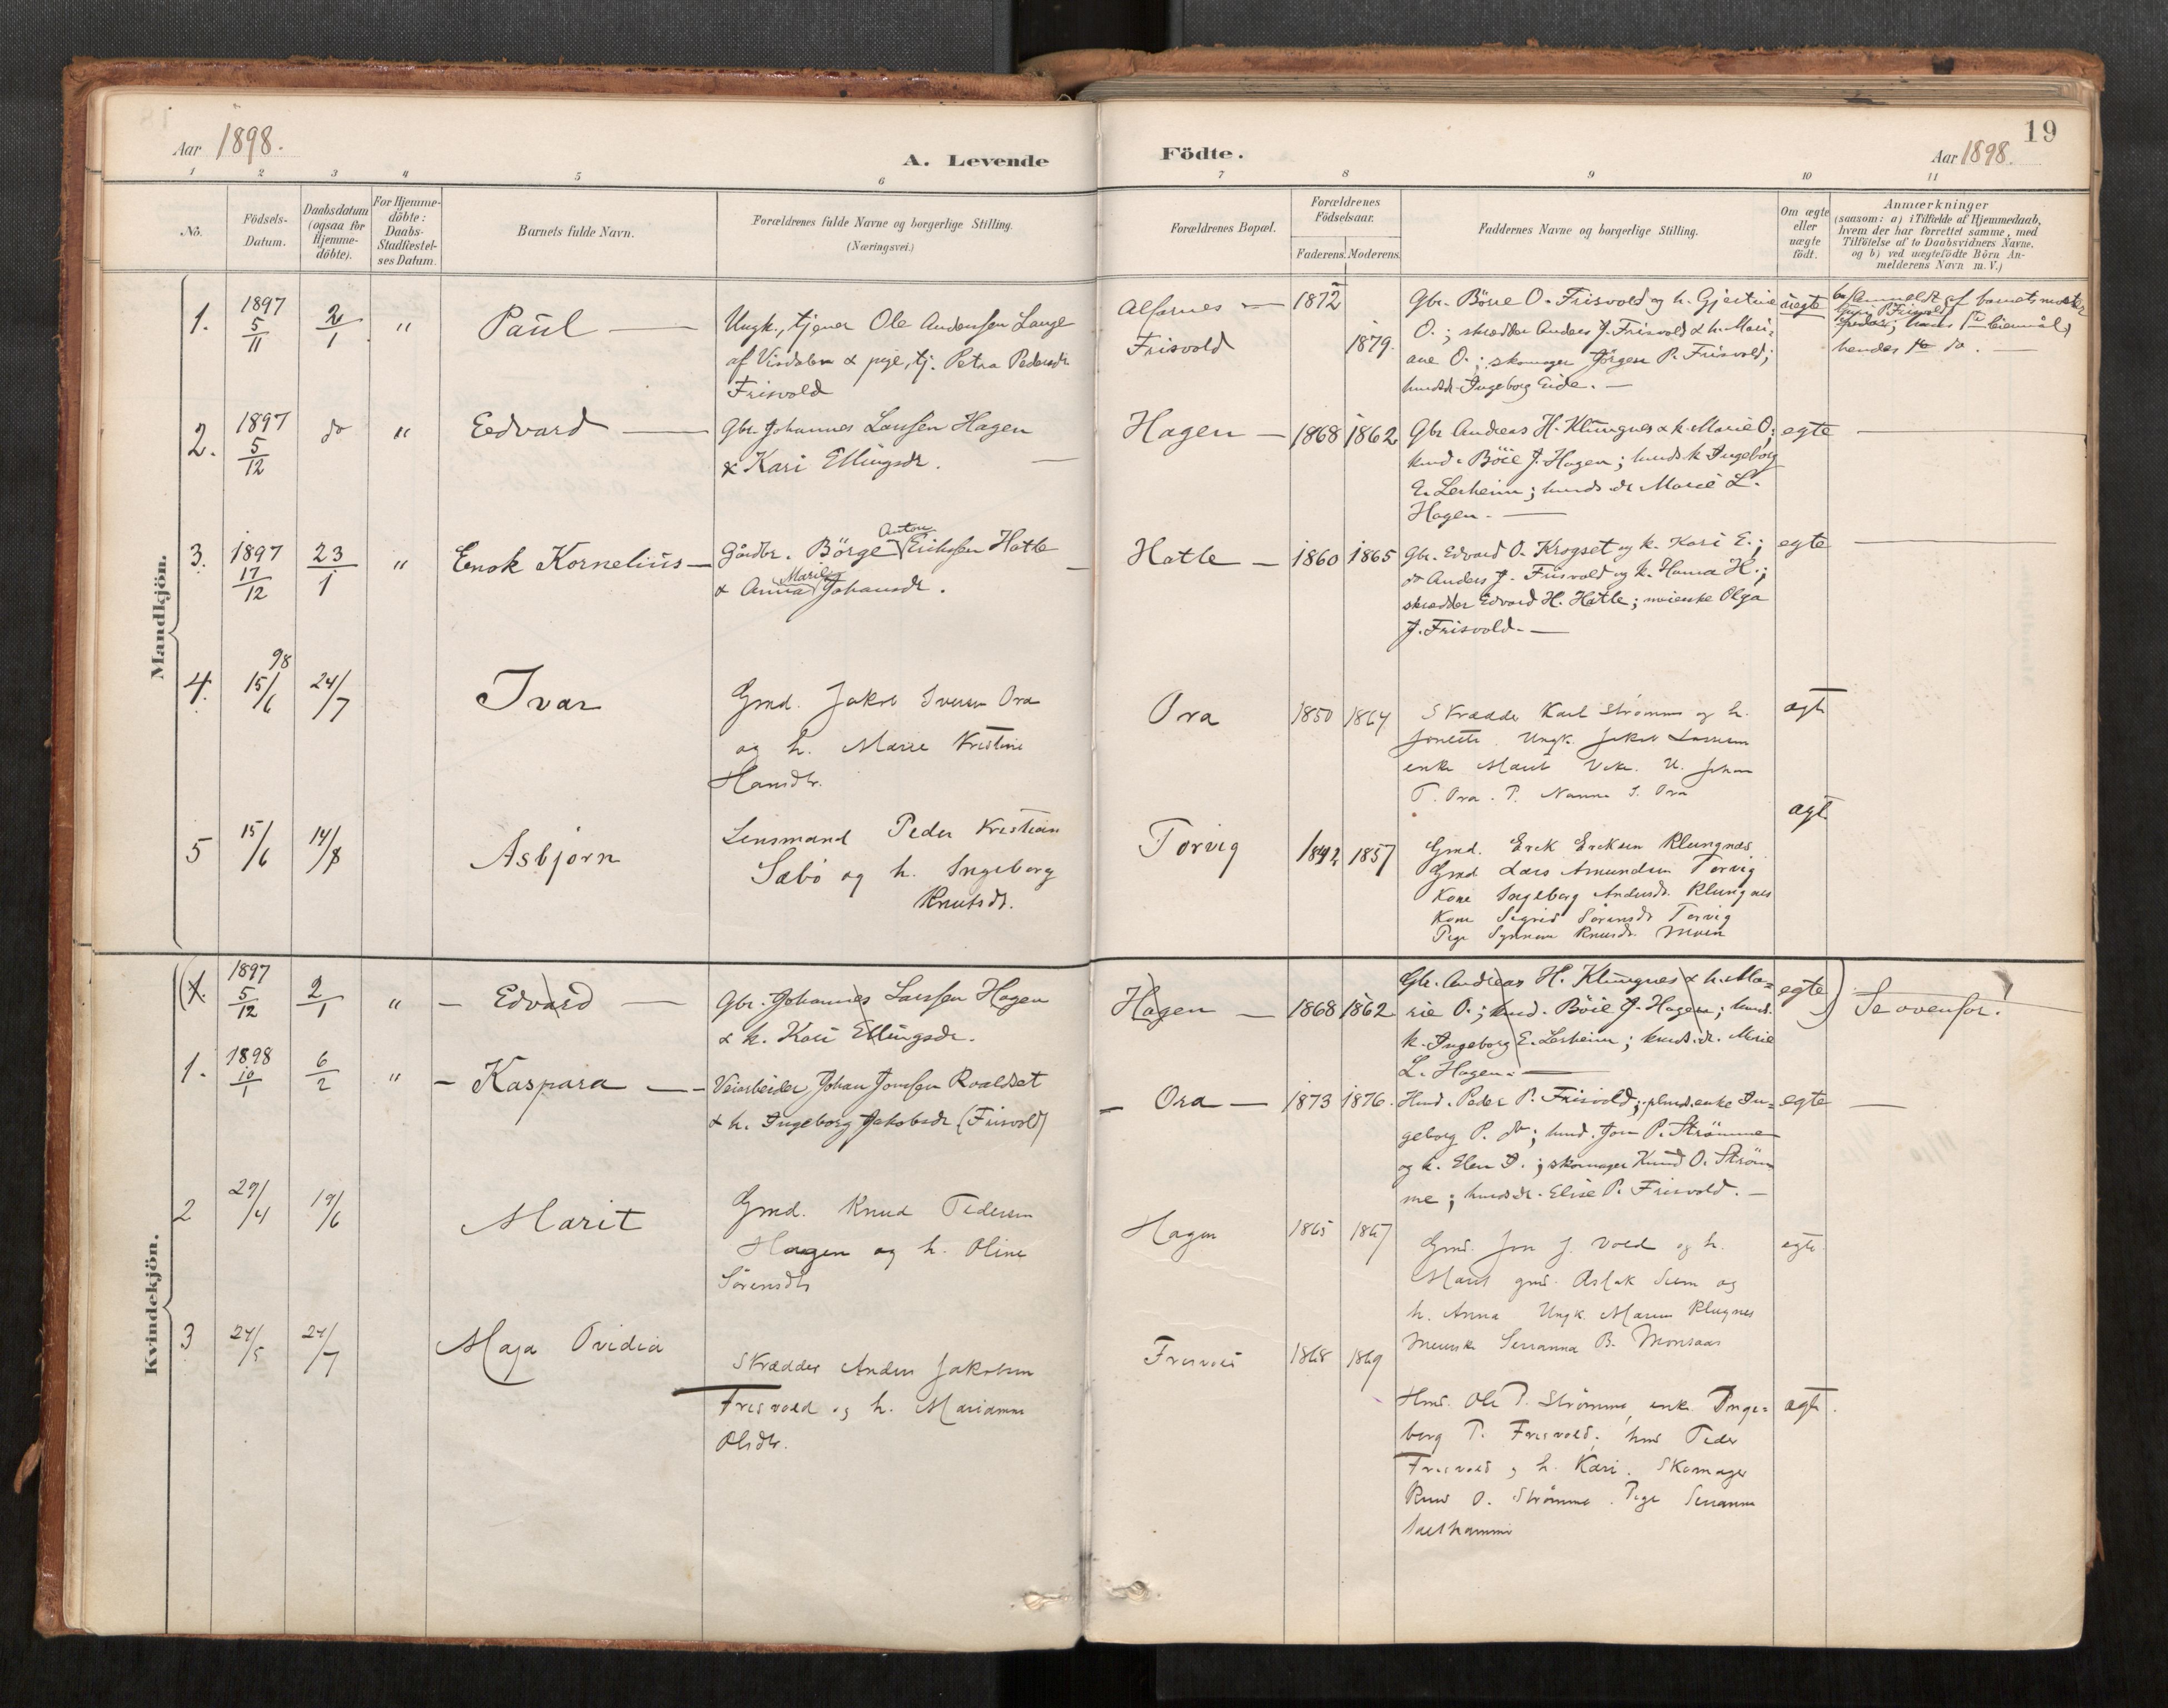 Aar 1898.
A. Levende
Födte.
19
Aar 1898.
1 2 3 4 5 6 7 8 9 10 11
No.
Födsels-Datum.
Daabsdatum (ogsaa for Hjemme-döbte).
For Hjemme-döbte: Daabs-Stadfæstel-ses Datum.
Barnets fulde Navn.
Forældrenes fulde Navne og borgerlige Stilling.
(Næringsvei.)
Forældrenes Bopæl.
Forældrenes Födselsaar.
Faderens. Moderens.
Faddernes Navne og borgerlige Stilling.
Om ægte eller uægte födt.
Anmærkninger
(saasom: a) i Tilfælde af Hjemmedaab,
hvem der har forrettet samme, med
Tilföielse af to Daabsvidners Navne.
og b) ved uægtefödte Börn An-
melderens Navn m. V.)
Mandkjön.
1. 1897 5/11 2/1 " Paul
Ungk., tjener Ole Andersen Lange
af Visdalen & pige, tj. Petra Pedersdr
Frisvold
Alfarnes
Frisvold
1872
1879.
Gbr. Böie O. Frisvold og h. Gjertine
O.; skrædder Anders J. Frisvold & h. Mari-
ane O.; skomager Jörgen P. Frisvold;
husds. Ingeborg Eide.
uegte
b) Anmeldt af barnets moster
hendes 1te do.
2. 1897 5/12 do " Eedvard
Gbr. Johannes Larssen Hagen
& Kari Ellingsdr.
Hagen 1868 1862
Gbr Andreas H. Klungnes & k. Marie O;
husd. Böie J. Hagen; husds. k Ingeborg
E. Lerheim; husds. dr Marie L.
Hagen.
egte
3. 1897 17/12 23/1 " Enok Kornelius
Gårdbr. Börge Anton Eriksen Hatle
& Anna Marie Johansdr.
Hatle 1860 1865
Gbr. Edvard O. Krogset og k. Kari E.;
do Anders J. Frisvold og k. Hanna H.;
skrædder Edvard H. Hatle; meierske Olga
J. Frisvold.
egte
4. 98 15/6 24/7 Ivar
Gmd. Jakob Iversen Ora
og h. Marie Kristine
Hansdtr.
Ora 1850 1864
Skrædder Karl Strømme og h.
Jonette. Ungk. Jakob Larssen
enke Marit Vike. U. Johan
T. Ora. P. Nanna I. Ora
ægte
5 15/6 14/8 Asbjørn
Lensmand Peder Kristian
Sæbø og h. Ingeborg
Knutsdr.
Torvig 1842 1857
Gmd. Erik Eriksen Klungnæs
Gmd Lars Amundsen Torvig
Kone Ingeborg Andersdr. Klungnes
Kone Sigrid Sørensdr Torvig
Pige Synnøve Knutsdr. Moen
ægt
Kvindekjön.
(1. 1897 5/12 2/1 " Edvard
Gbr. Johannes Larssen Hagen
& k. Kari Ellingsdr.
Hagen 1868 1862
Gbr. Andreas H. Klungnes & h. Ma-
rie O.; husd. Böie J. Hagen; husds.
k. Ingeborg E. Lerheim; husds. dr. Marie
L. Hagen.
egte) Se ovenfor!
1. 1898 10/1 6/2 " Kaspara
Veiarbeider Johan Jonssen Roaldset
& h. Ingeborg Jakobsdr (Frisvold)
Ora 1873 1876.
Husd. Peder P. Frisvold; plads.enke In-
geborg P. do; husd. Jon P. Strömme
og k. Elen I.; skomager Knud O. Ström-
me; husds dr. Elise P. Frisvold.
egte
2 29/4 19/6 Marit
Gmd. Knud Pedersen
Hagen og h. Oline
Sørensdtr
Hagen 1865 1867
Gmd. Jon J. Vold og h.
Marit gmd. Aslak Seem og
h. Anna Ungk. Klugnes
Meierske Serianna B. Monsaas
egte.
3 24/5 24/7 Maja Ovidia
Skrædder Anders Jakobsen
Frisvold og h. Marianne
Olsdtr.
Frisvold 1868 1869
Hmd. Ole P. Strømme, enke Inge-
borg P. Frisvold; hmd Peder
Frisvold og h. Kari. Skomager
Knud O. Strømme. Pige Serianna
ægte.